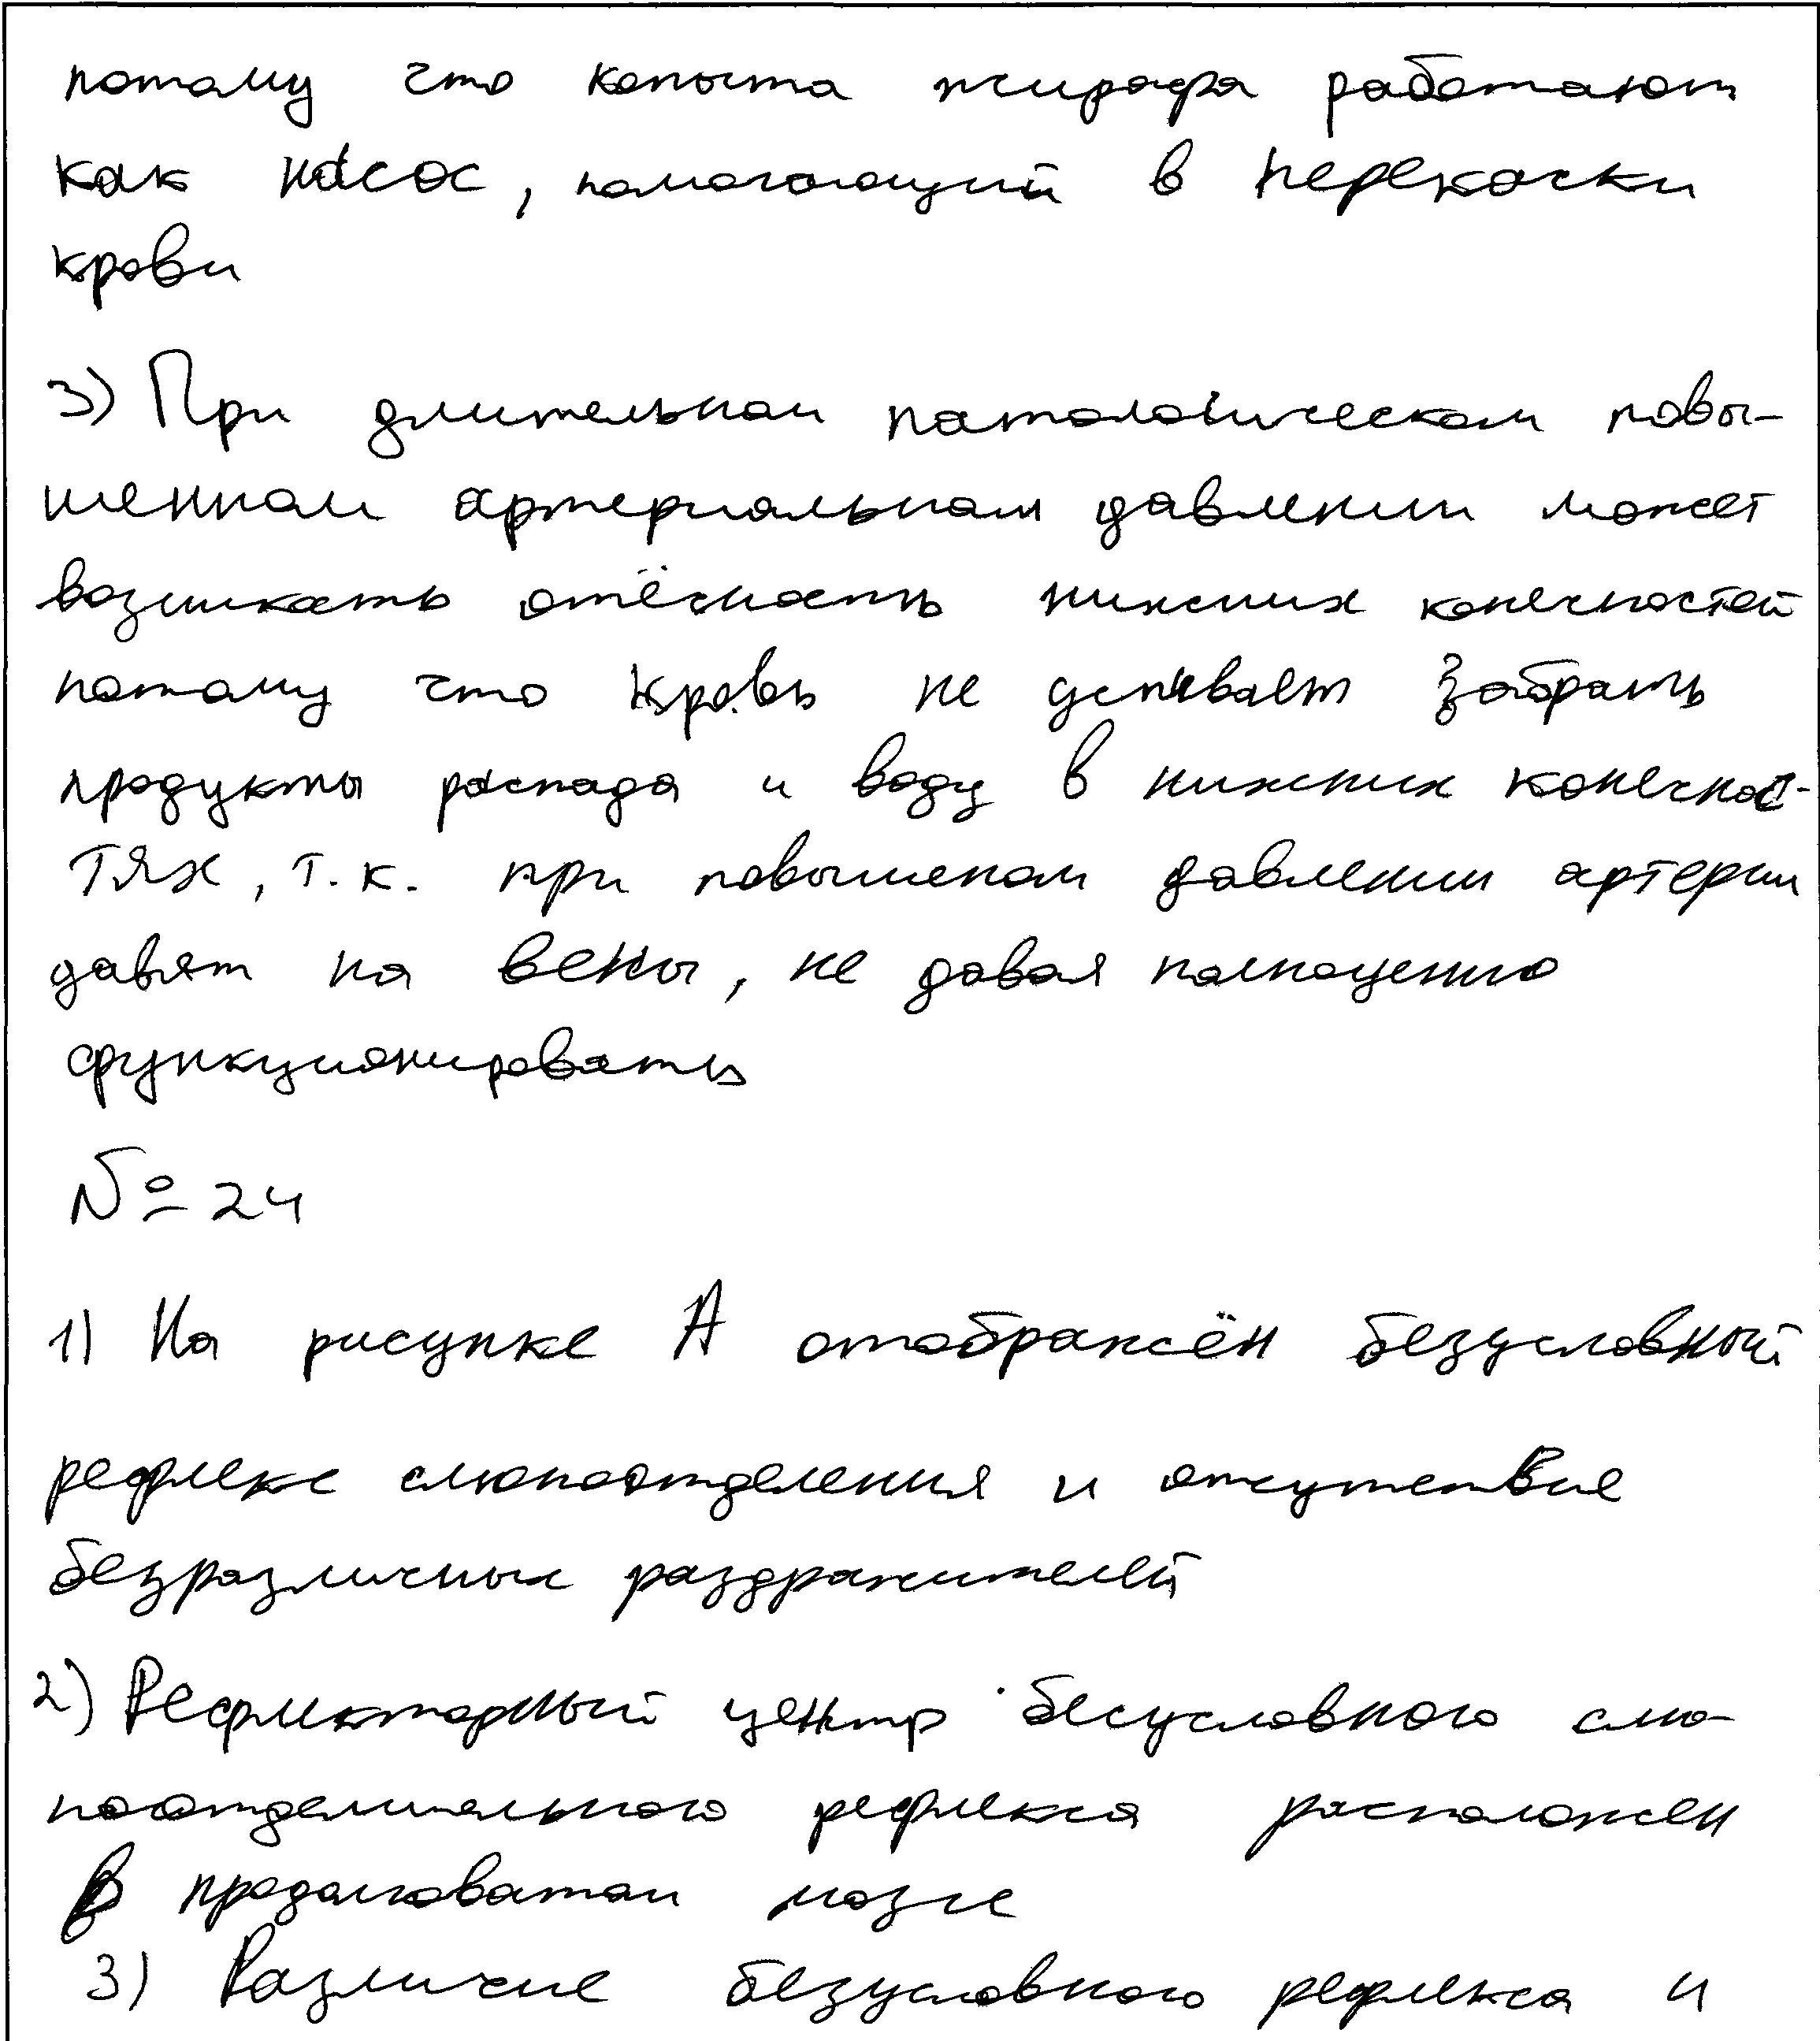 потому что копыта жирафа работают
как насос, помогающий в перекачки
крови
3) При длительном патологическом повы-
шенном артериальном давлении может
возникать отёчность нижних конечностей
потому что кровь не успевает забрать
продукты распада и воду в нижних конечнос-
тях, т.к. при повышеном давлении артерии
давят на вены, не давая полноценно
функционировать
№ 24
1) На рисунке А отображён безусловный
рефлекс слюноотделения и отсутствие
безразличных раздражителей
2) Рефлекторный центр бесусловного слю-
ноотделительного рефлекса расположен
в продолговатом мозге
3) Различие безусловного рефлекса и